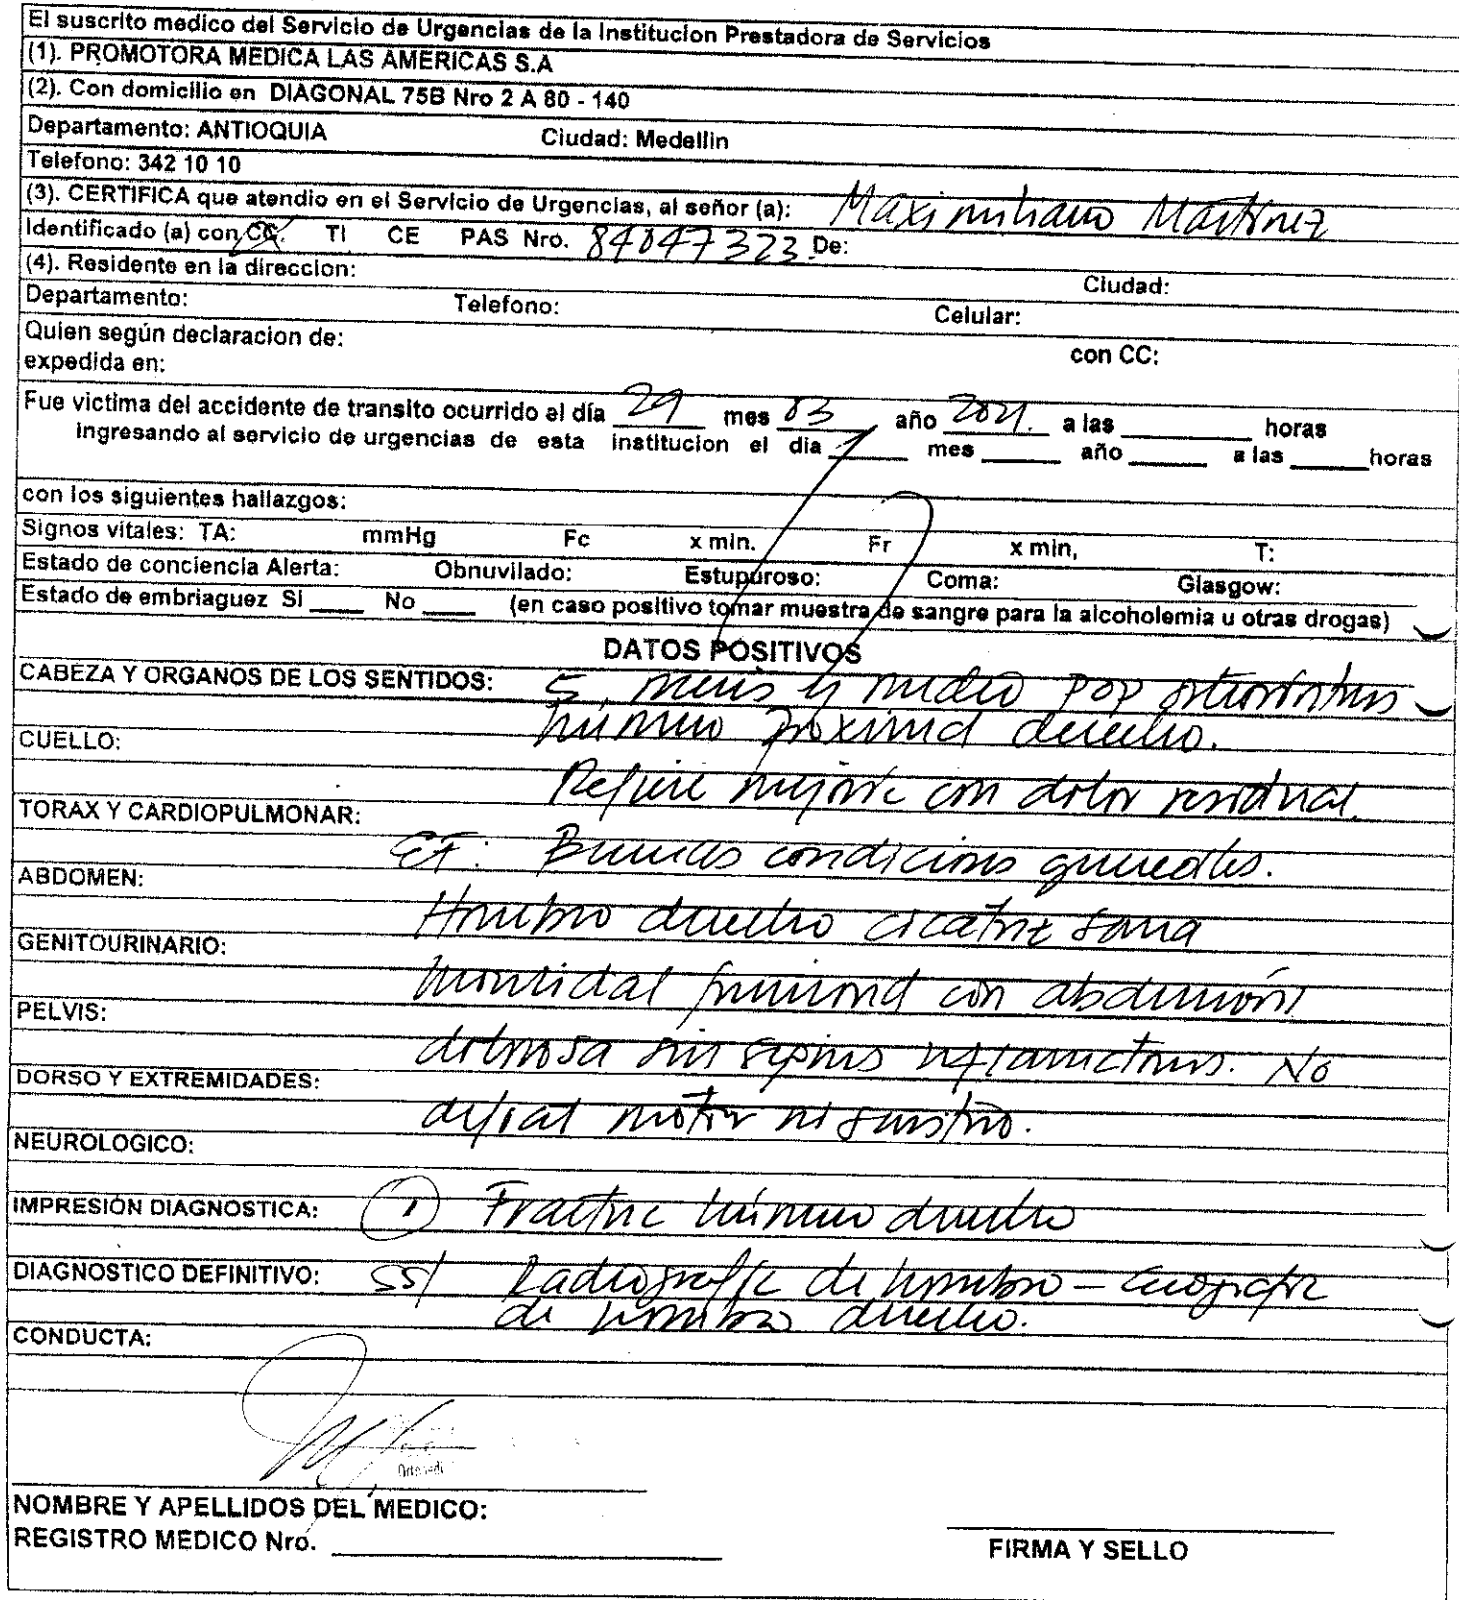 El suscrito medico del Servicio de Urgencias de la Institucion Prestadora de Servicios
(1). PROMOTORA MEDICA LAS AMERICAS S.A
(2). Con domicilio en DIAGONAL 75B Nro 2 A 80 - 140
Departamento: ANTIOQUIA Ciudad: Medellin
Telefono: 342 10 10
(3). CERTIFICA que atendio en el Servicio de Urgencias, al señor (a): Maximiliano Martinez
Identificado (a) con CC. TI CE PAS Nro. 84047323 De:
(4). Residente en la direccion: Ciudad:
Departamento: Telefono: Celular:
Quien según declaracion de: con CC:
expedida en:
Fue victima del accidente de transito ocurrido el día 29 mes 03 año 2021. a las ______ horas
ingresando al servicio de urgencias de esta institucion el dia ____ mes ____ año ____ a las ____ horas
con los siguientes hallazgos:
Signos vitales: TA: mmHg Fc x min. Fr x min, T:
Estado de conciencia Alerta: Obnuvilado: Estupuroso: Coma: Glasgow:
Estado de embriaguez SI ____ No ____ (en caso positivo tomar muestra de sangre para la alcoholemia u otras drogas)
DATOS POSITIVOS
CABEZA Y ORGANOS DE LOS SENTIDOS: 5 meses y medio pop osteosíntesis
húmero proximal derecho.
CUELLO:
Refiere mejoría con dolor residual.
TORAX Y CARDIOPULMONAR:
EF: Buenas condiciones generales.
ABDOMEN:
Hombro derecho cicatriz sana
GENITOURINARIO:
movilidad funcional con abducción
PELVIS:
dolorosa sin signos inflamatorios. No
DORSO Y EXTREMIDADES:
deficit motor ni sensitivo.
NEUROLOGICO:
IMPRESIÓN DIAGNOSTICA: 1 Fractura húmero derecho
DIAGNOSTICO DEFINITIVO: SS/ Radiografía de hombro - Ecografía
de hombro derecho.
CONDUCTA:
NOMBRE Y APELLIDOS DEL MEDICO:
REGISTRO MEDICO Nro. ______
FIRMA Y SELLO